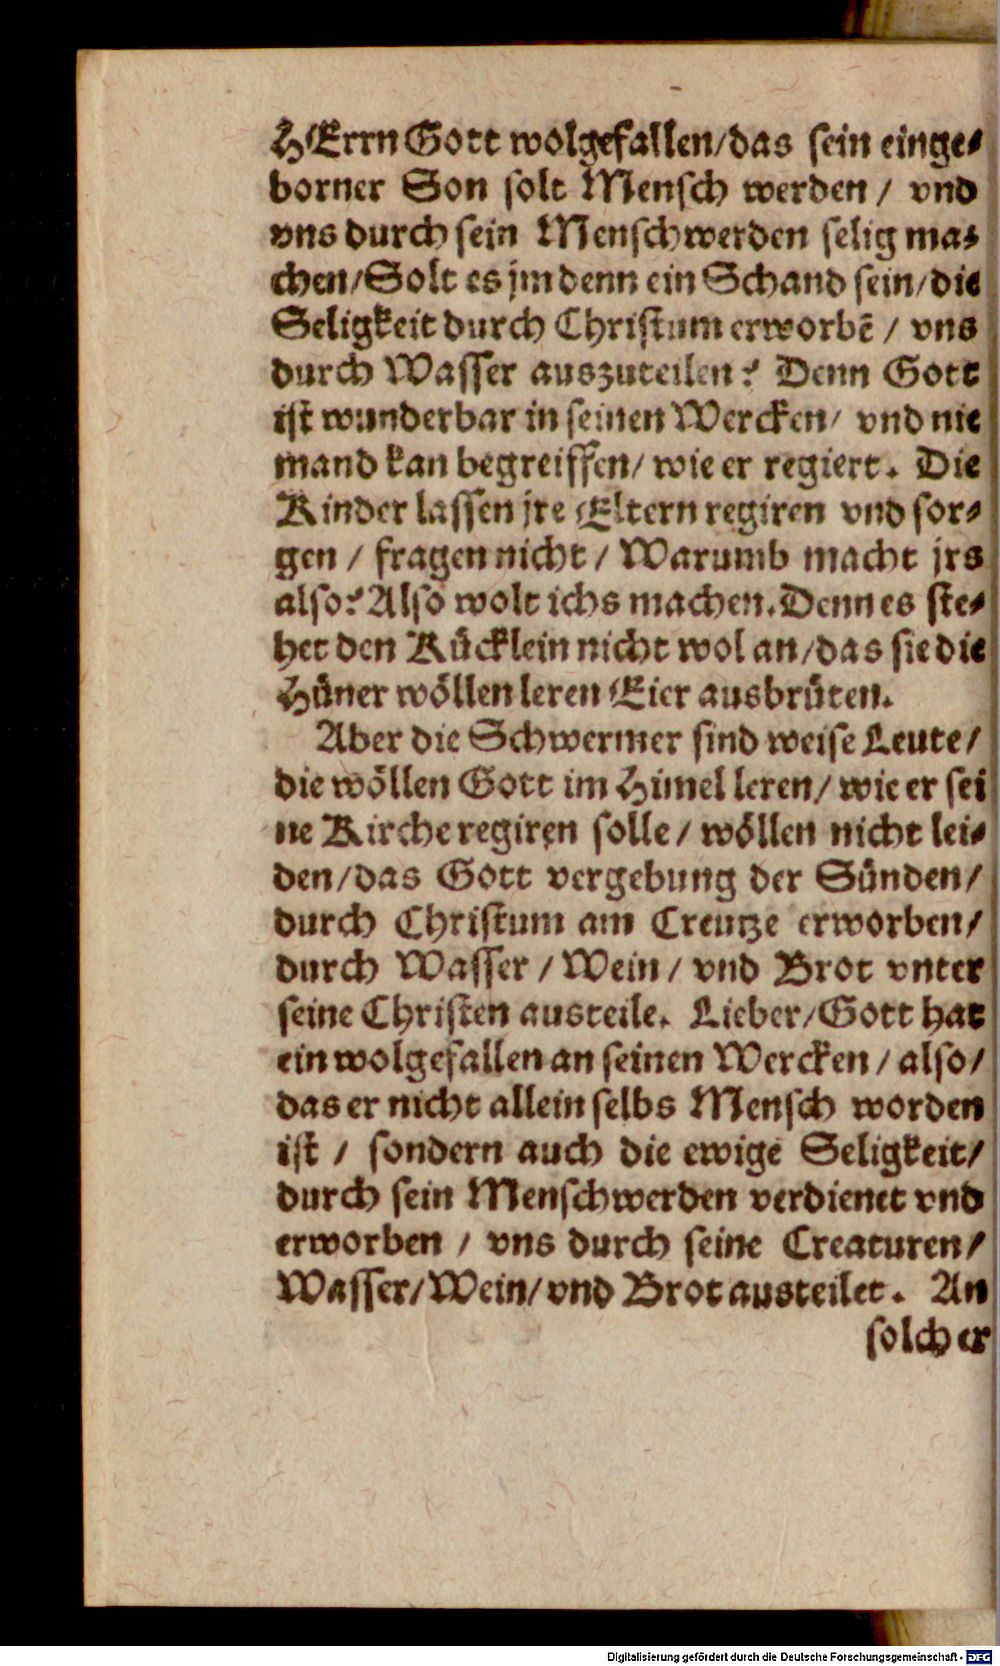 HErrn Gott wolgefallen/das sein einge⸗
borner Son solt Mensch werden / vnd
vns durch sein Menschwerden selig ma⸗
chen/Solt es jm denn ein Schand sein/die
Seligkeit durch Christum erworbẽ / vns
durch Wasser auszuteilen? Denn Gott
ist wunderbar in seinen Wercken/ vnd nie
mand kan begreiffen/ wie er regiert. Die
Kinder lassen jre Eltern regiren vnd sor⸗
gen / fragen nicht / Warumb macht jrs
also? Also wolt ichs machen. Denn es ste⸗
het den Kücklein nicht wol an/das sie die
Hüner wöllen leren Eier ausbrüten.
Aber die Schwermer sind weise Leute/
die wöllen Gott im Himel leren/ wie er sei
ne Kirche regiren solle / wöllen nicht lei⸗
den/das Gott vergebung der Sünden/
durch Christum am Creutze erworben/
durch Wasser / Wein / vnd Brot vnter
seine Christen austeile. Lieber/Gott hat
ein wolgefallen an seinen Wercken / also/
das er nicht allein selbs Mensch worden
ist / sondern auch die ewige Seligkeit/
durch sein Menschwerden verdienet vnd
erworben / vns durch seine Creaturen/
Wasser/Wein/vnd Brot austeilet. An
solcher
Digitalisierung gefördert durch die Deutsche Forschungsgemeinschaft - DFG